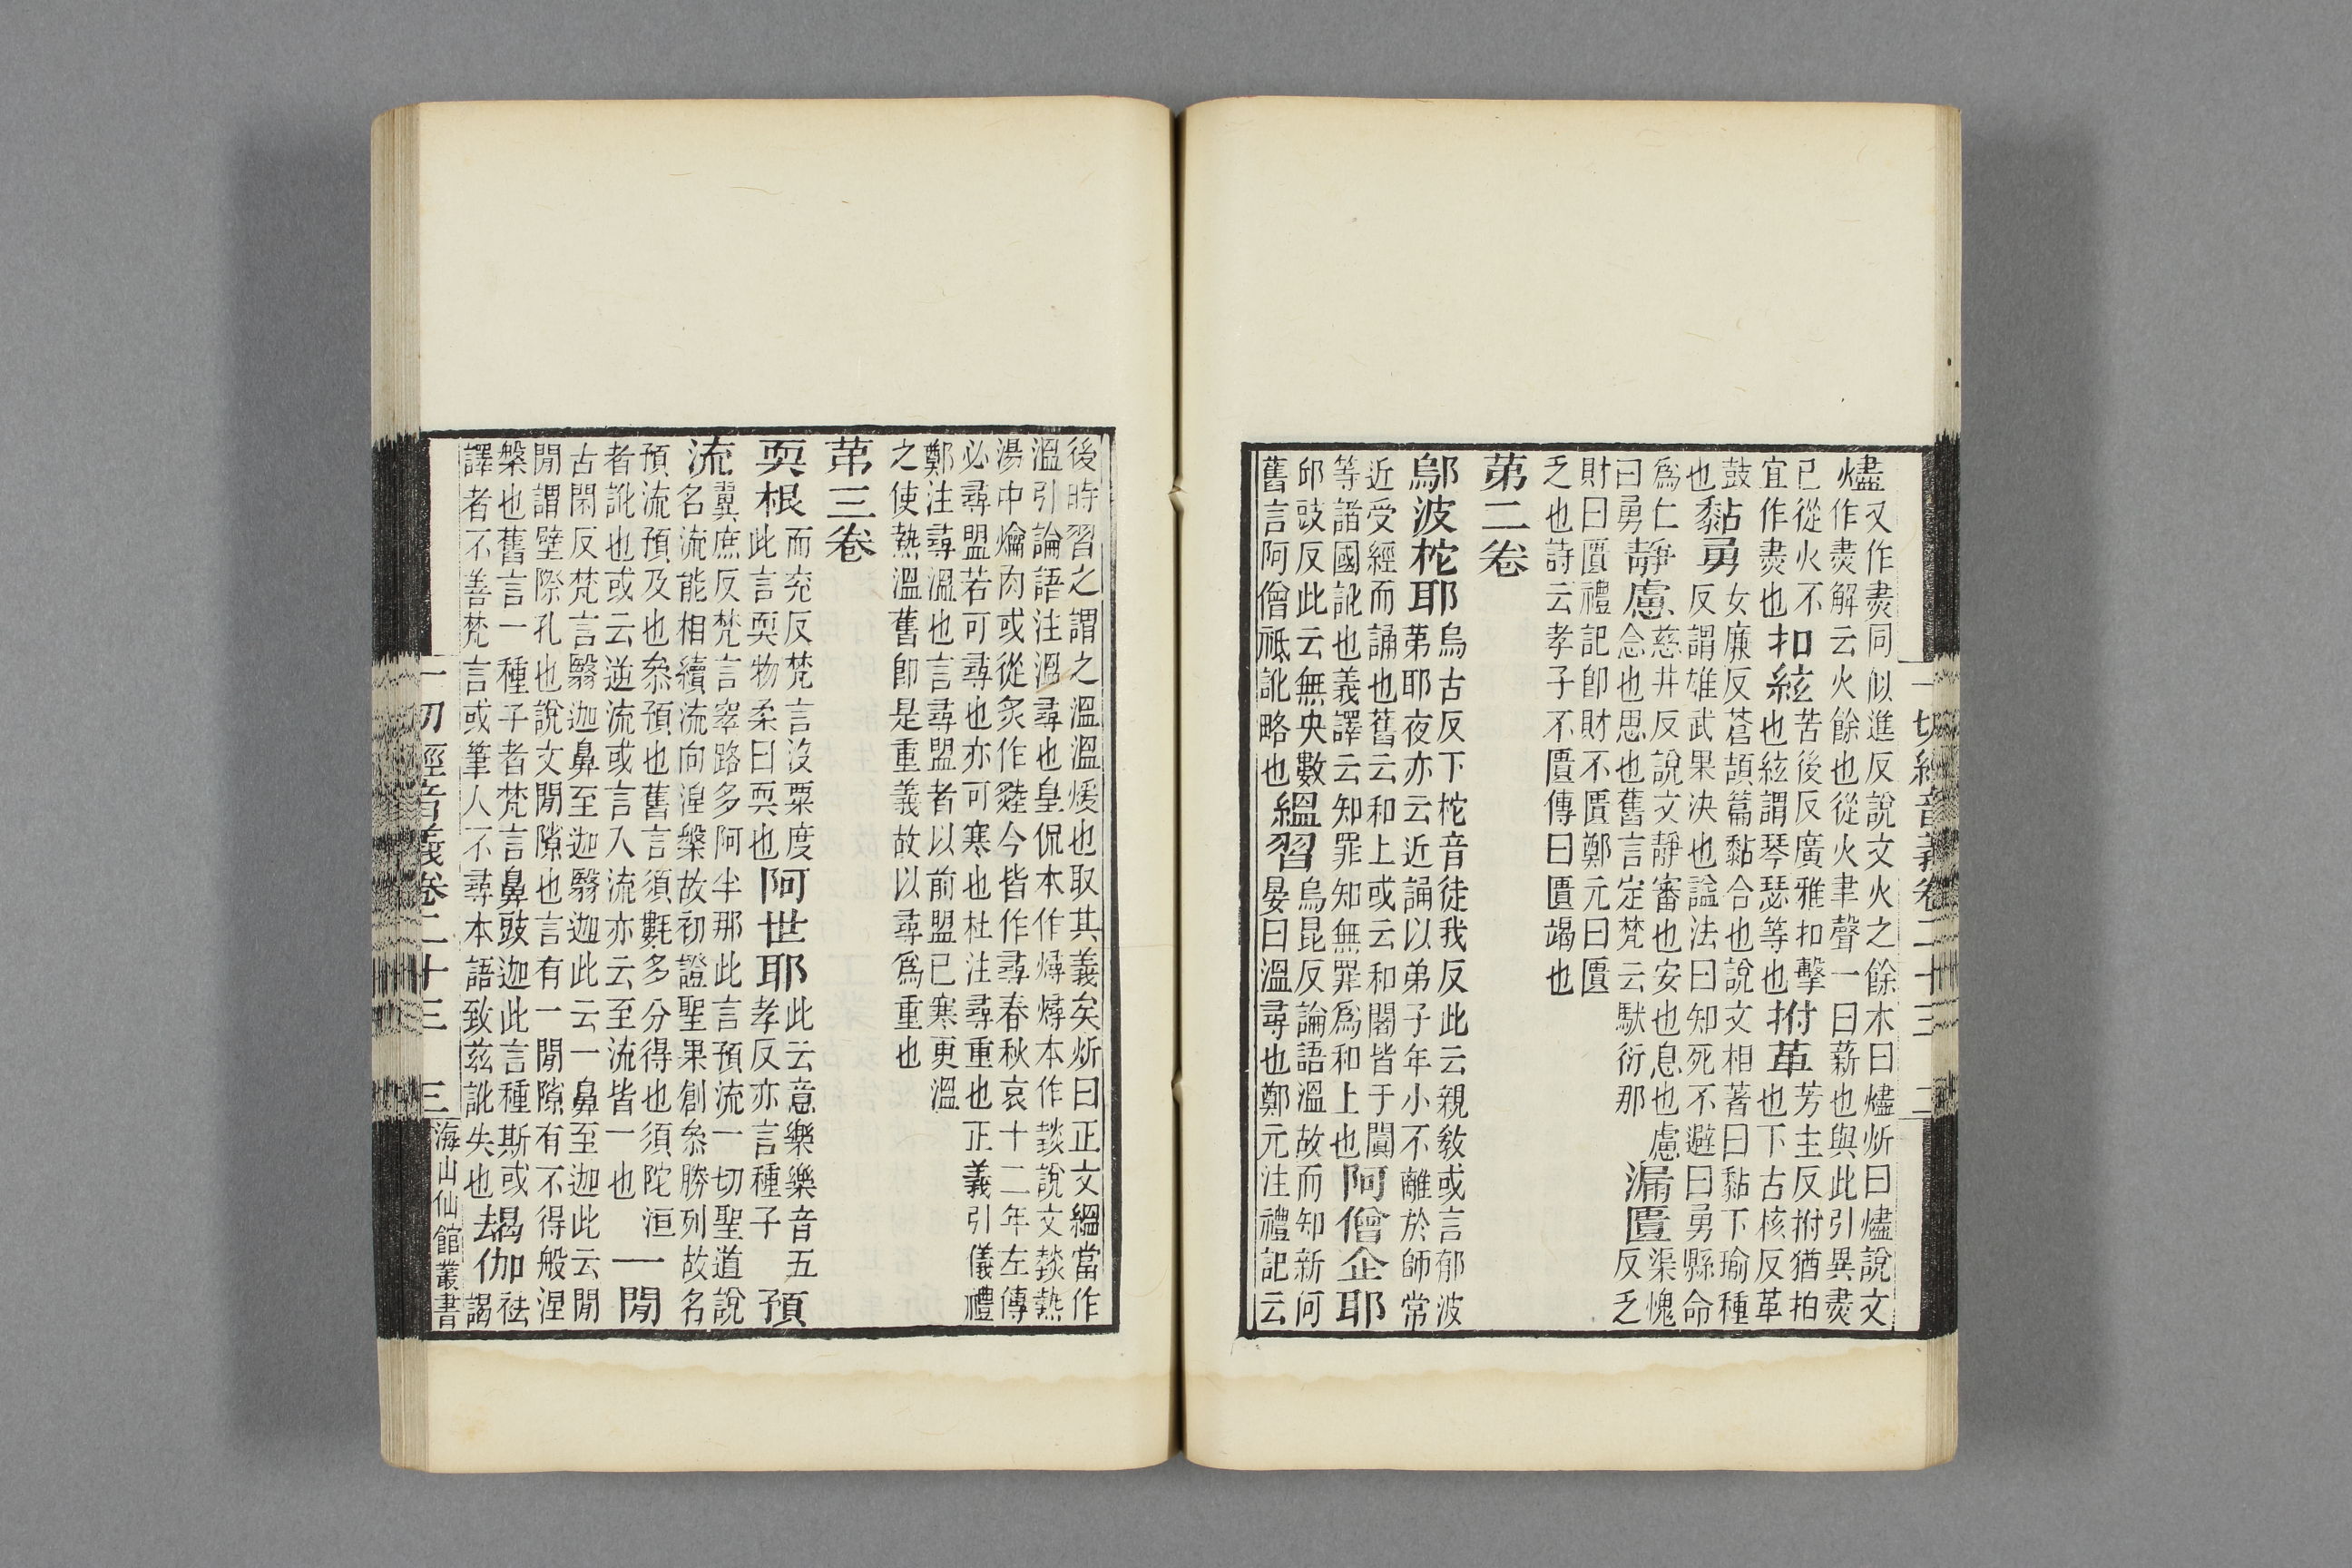 燼
又作㶳同似進反說文火之餘木曰燼炘曰燼說文
作㶳解云火餘也從火聿聲一曰薪也與此引異㶳
已從火不
宜作㶳也
扣絃
苦後反廣雅扣擊
也絃謂琴瑟等也
拊革
芳主反拊猶拍
也下古核反革
鼓
也
黏勇
女廉反蒼頡篇黏合也說文相著曰黏下瑜種
反謂雄武果決也謚法曰知死不避曰勇縣命
爲仁
曰勇
靜慮
慈井反說文靜審也安也息也慮
念也思也舊言定梵云馱衍那
漏匱
渠愧
反乏
財曰匱禮記卽財不匱鄭元曰匱
乏也詩云孝子不匱傳曰匱竭也
第二卷
鄔波柁耶
烏古反下柁音徒我反此云親敎或言郁波
第耶夜亦云近誦以弟子年小不離於師常
近受經而誦也舊云和上或云和闍皆于闐
等諸國訛也義譯云知罪知無罪爲和上也
阿僧企耶
邱豉反此云無央數
舊言阿僧祇訛略也
縕習
烏昆反論語溫故而知新何
晏曰溫尋也鄭元注禮記云
一切經音義卷二十三 二
後時習之謂之溫溫煖也取其義矣炘曰正文縕當作
溫引論語注溫尋也皇侃本作燖燖本作燅說文燅熱
湯中爚肉或從炙作今皆作尋春秋哀十二年左傳
必尋盟若可尋也亦可寒也杜注尋重也正義引儀禮
鄭注尋溫也言尋盟者以前盟已寒更溫
之使熱溫舊卽是重義故以尋爲重也
第三卷
耎根
而兗反梵言沒栗度
此言耎物柔曰耎也
阿世耶
此云意樂樂音五
孝反亦言種子
預
流
翼庶反梵言窣路多阿半那此言預流一切聖道說
名流能相續流向湼槃故初證聖果創叅勝列故名
預流預及也叅預也舊言須𣯛多分得也須陀洹
者訛也或云逆流或言入流亦云至流皆一也
一閒
古閑反梵言翳迦鼻至迦翳迦此云一鼻至迦此云閒
閒謂壁隙孔也說文閒隙也言有一閒隙有不得般涅
槃也舊言一種子者梵言鼻豉迦此言種斯或
譯者不善梵言或筆人不尋本語致茲訛失也
朅伽
祛
謁
一切經音義卷二十三 三
海山仙館叢書